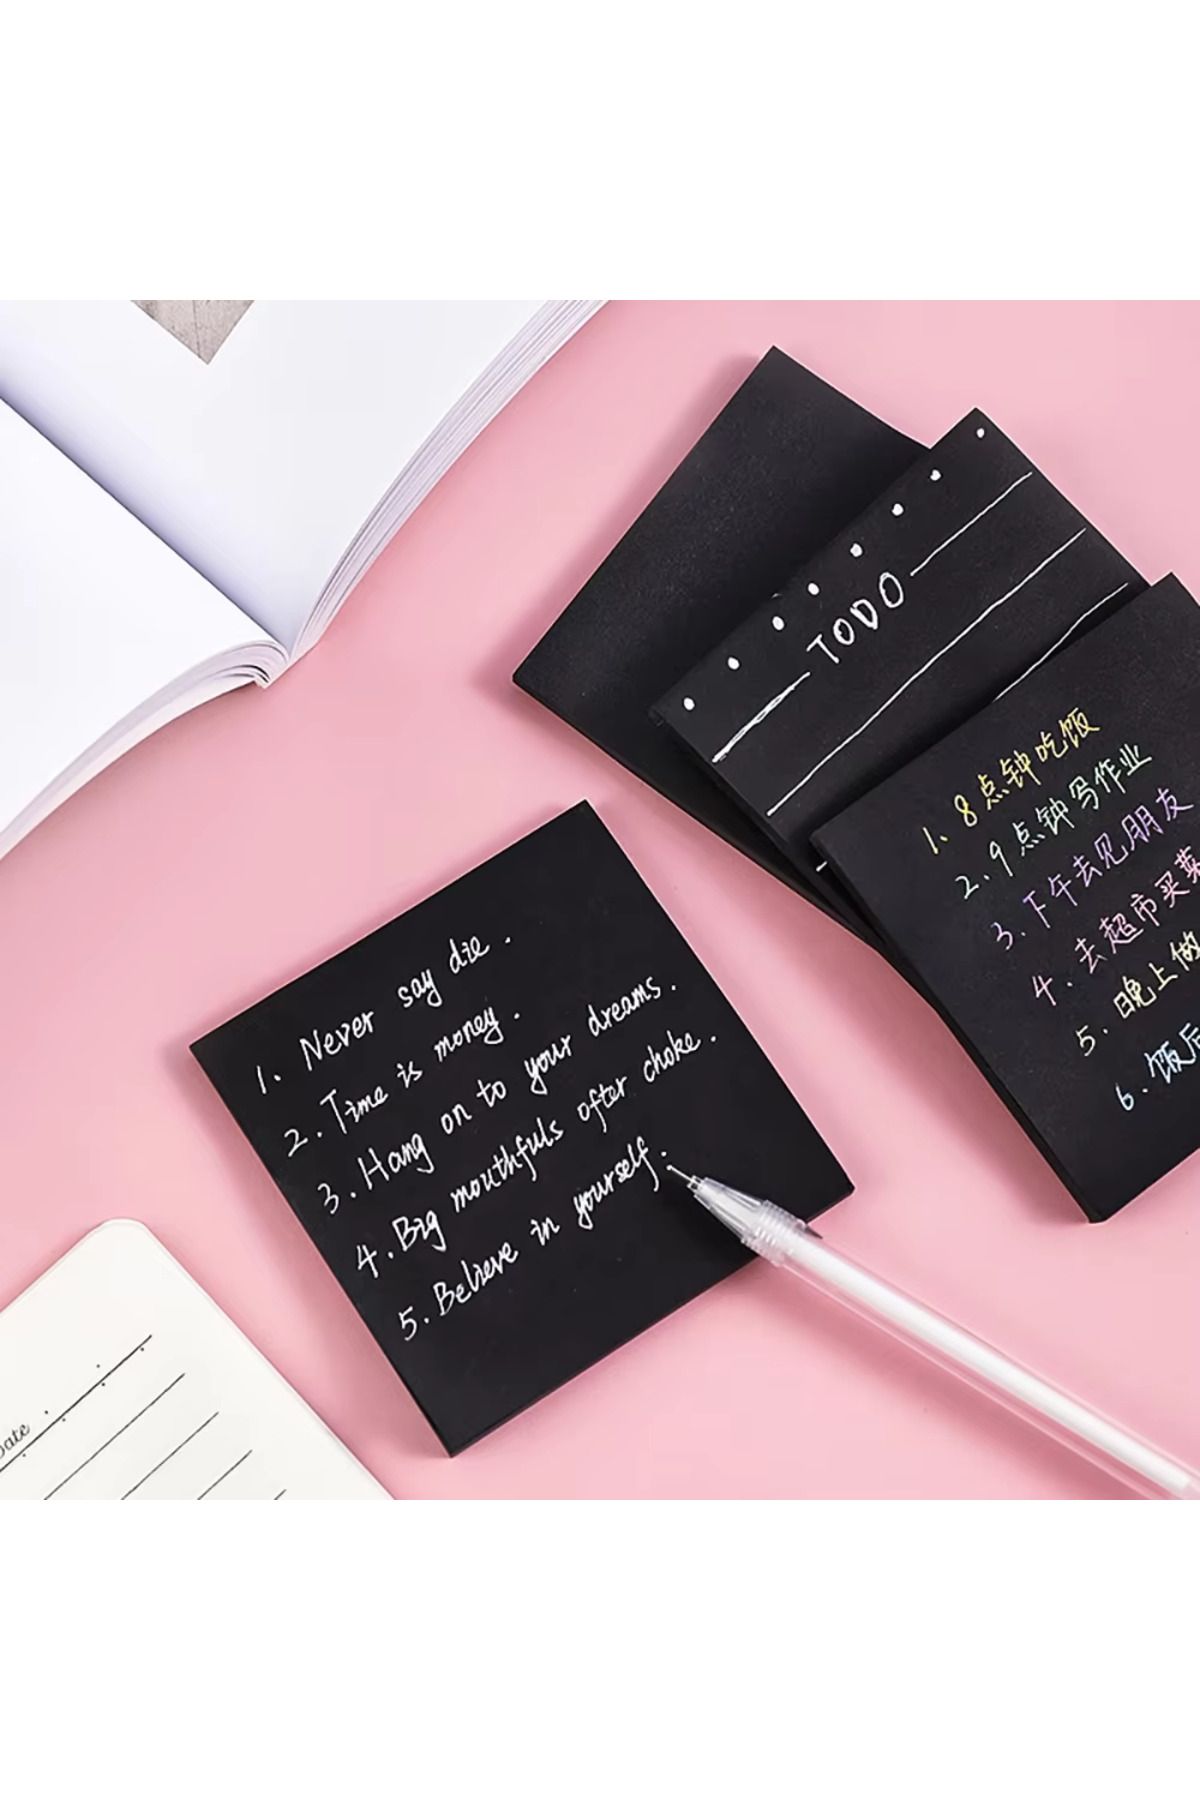 TODO
1、8点钟吃饭
2、9点钟写作业
3、下午去见朋友
4、去超市买菜
5、晚上做
6、饭后
1、Never say die.
2.Time is money.
3.Hang on to your dreams.
4.Big mouthfuls ofter choke.
5.Believe in yourself.
Date